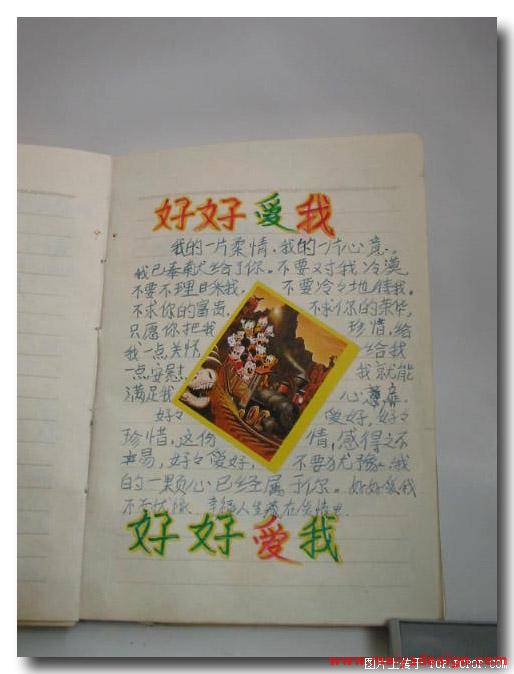 好好爱我
我的一片柔情,我的一片心意。
我已奉献给了你。不要对我冷漠
不要不理自来我, 不要冷冷地待我。
不求你的富贵, 不求你的荣华,
只愿你把我 珍惜,给
我一点关怀 给我
一点安慰 我就能
满足我 心意
好々 爱好,好々
珍惜,这份 情,感得之不
易,好々爱好, 不要犹豫。我
的一颗心已经属于你。好好爱我
幸福人生
好好爱我
图片上传于